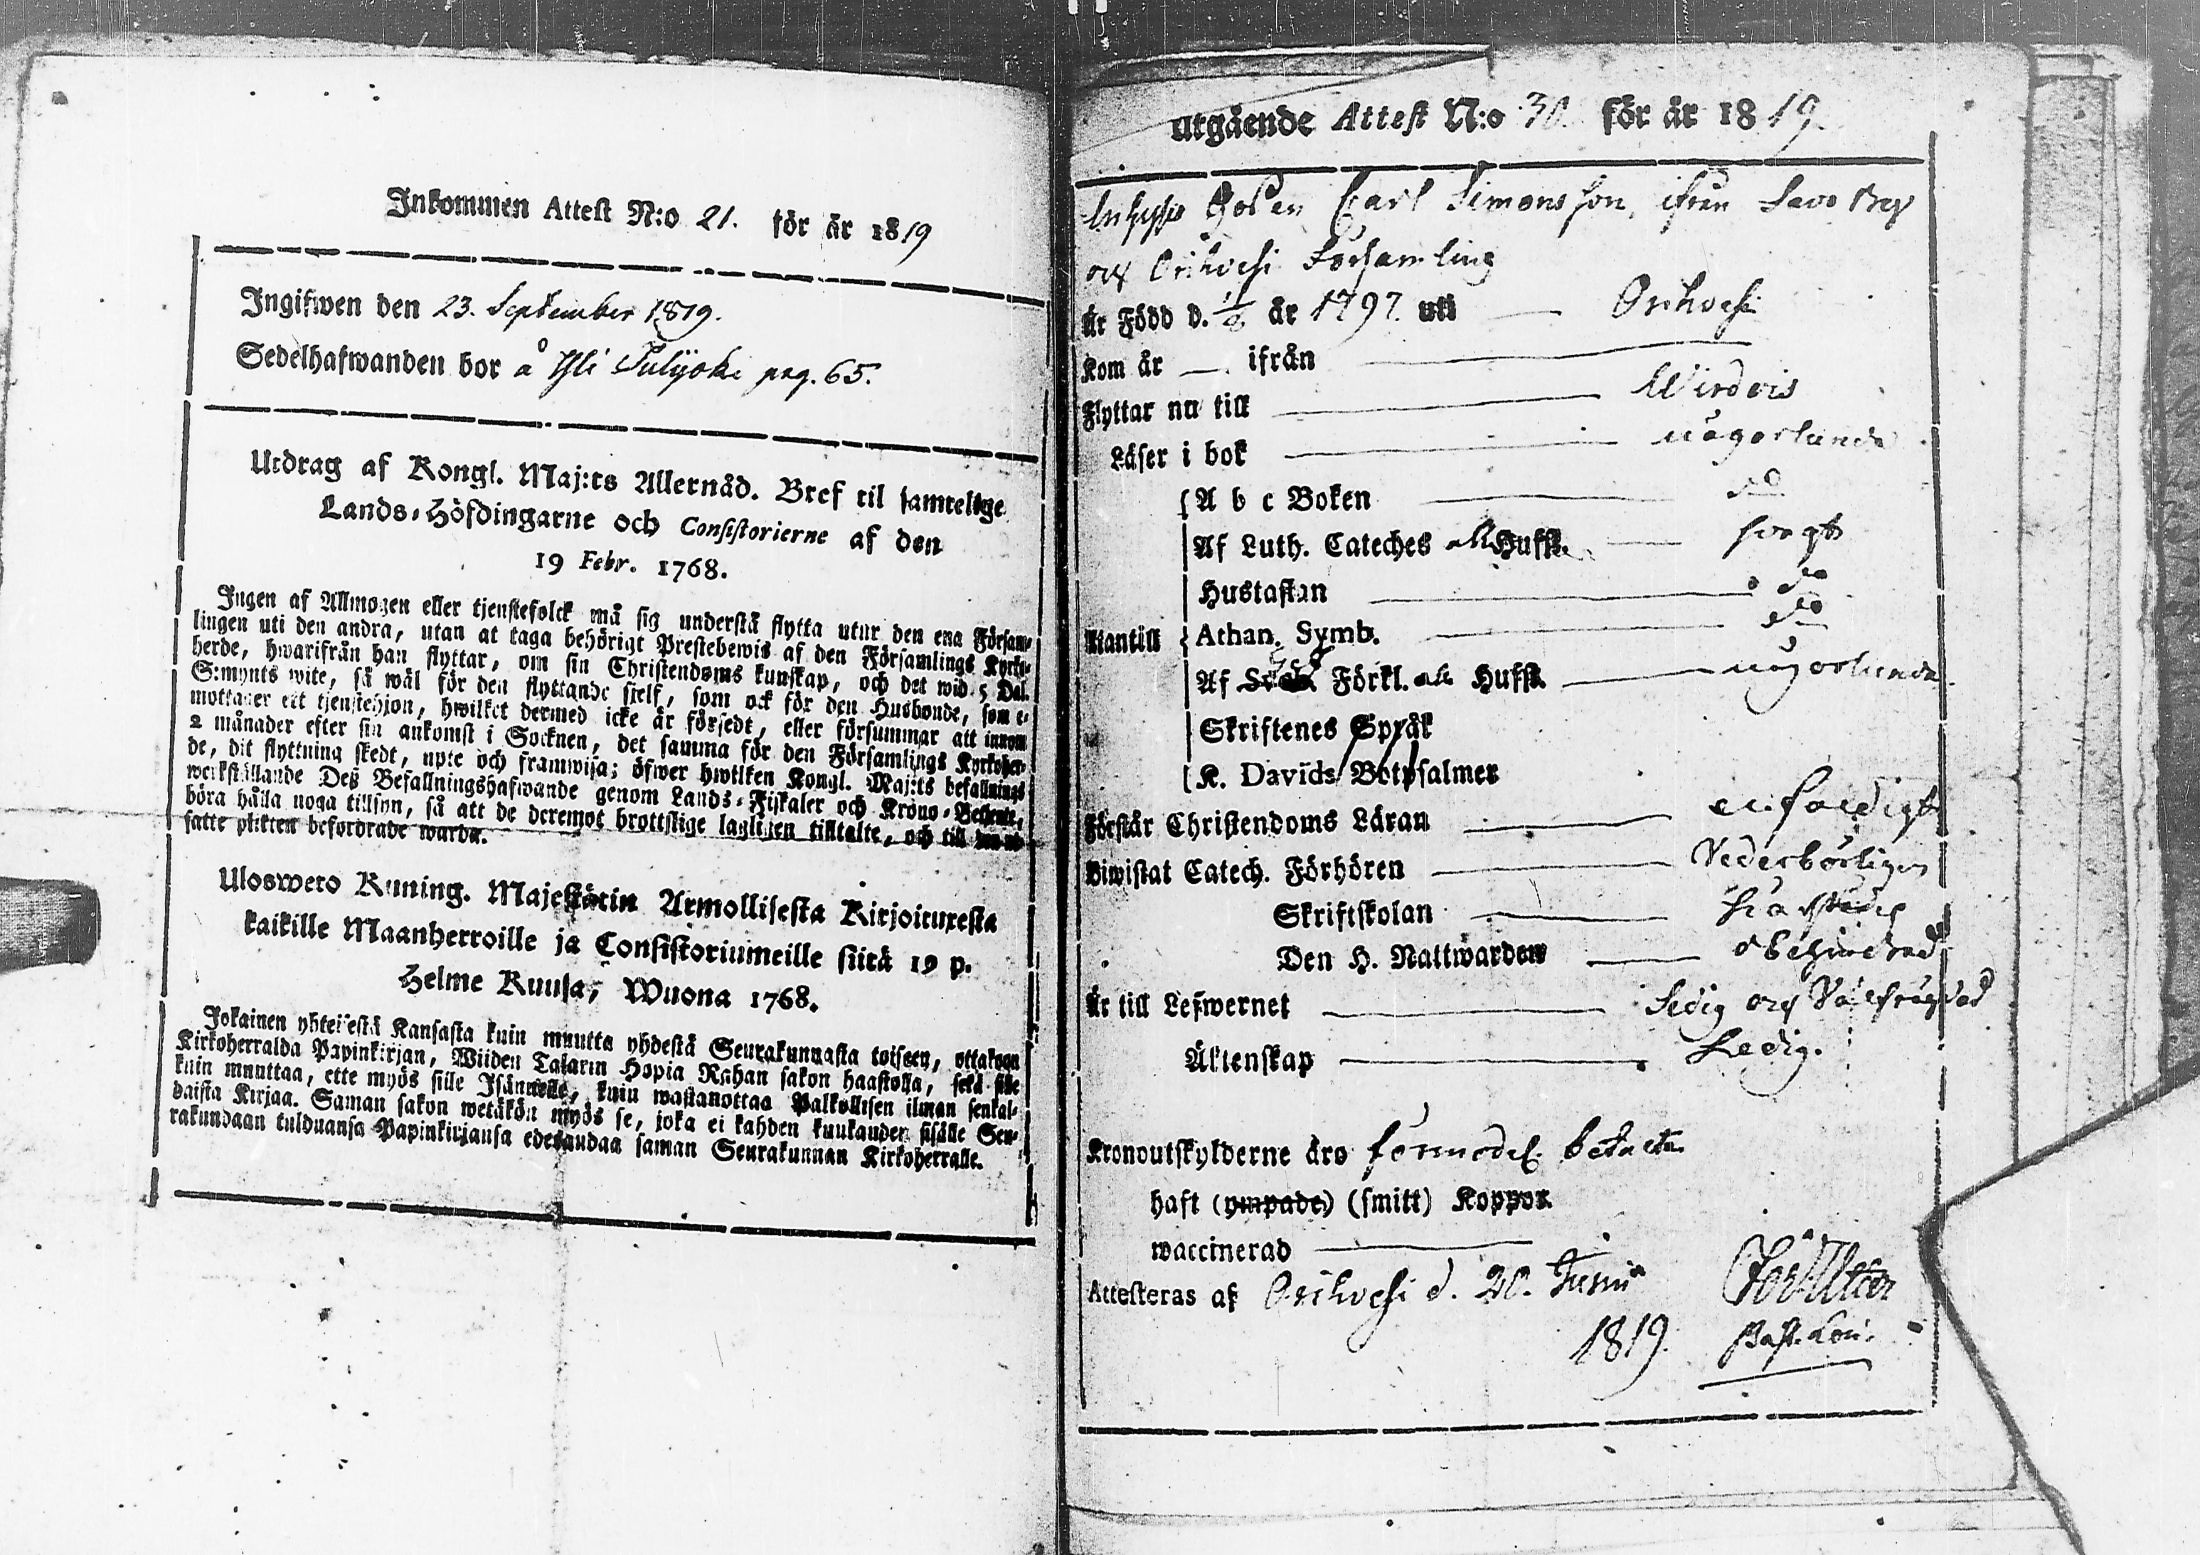 Inkommen Attest N:o 21. för år 1819
Ingifwen den 23. September 1819.
Sedelhafwanden bor å Yli Sulyoki pag. 65.
Utdrag af Kongl. Maj:ts Allernåd. Bref til samtelige
Lands-Höfdingarne och Consistorierne af den
19 Febr. 1768.
Ingen af Allmogen eller tjenstefolck må sig understå flytta utur den ena Försam-
lingen uti den andra, utan at taga behörigt Prestebewis af den Församlings Kyrko-
herde, hwarifrån han flyttar, om sin Christendoms kunskap, och det wid 5 Dal.
S:mynts wite, så wäl för den flyttande sjelf, som ock för den Husbonde, som e-
mottager ett tjenstehjon, hwilket dermed icke är försedt, eller försummar att innom
2 månader efter sin ankomst i Socknen, det samma för den Församlings Kyrkoher-
de, dit flyttning skedt, upte och framwisa; öfwer hwilken Kongl. Maj:ts befallnings
werkställande Deß Befallningshafwande genom Lands-Fiskaler och Krono-Betjente,
böra hålla noga tillsyn, så att de deremot brottslige lagligen tilltalte, och till
satte plikten befordrade warda.
Uloswero Kuning. Majestätin Armollisesta Kirjoituxesta
kaikille Maanherroille ja Consistoriumeille siitä 19 p.
Helme Kuusa, Wuona 1768.
Jokainen yhteisestä Kansasta kuin muutta yhdestä Seurakunnasta toiseen, ottakoan
Kirkoherralda Papinkirjan, Wiiden Talarin Hopia Rahan sakon haastolla, sekä sille
kuin muuttaa, ette myös sille Isännelle, kuin wastanottaa Palkollisen ilman senkal-
daista Kirjaa. Saman sakon wetäkön myös se, joka ei kahden kuukauden sisälle Seu-
rakundaan tulduansa Papinkirjansa edesandaa saman Seurakunnan Kirkoherralle.
Utgående Attest N:o 30. för år 1819.
Carl Simonsson, ifrån Savo By
och Orihvesi Församling
Är Född d. 1/8 år 1797. uti Orihvesi
Kom år — ifrån
Flyttar nu till Wirdois
Läser i bok någorlunda
A b c Boken do
Af Luth. Cateches Huffst. svagt
Hustaflan do
Utantill Athan. Symb. do
Af Förkl. Huffst. någorlunda
Skriftenes Språk
K. Davids Botpsalmer
Förstår Christendoms Läran enfaldigt
Biwistat Catech. Förhören Vederbörligen
Skriftskolan
Den H. Nattwarden obehindrad
Är till Lefwernet Ledig och Välfrägdad
Äktenskap Ledig.
Kronoutskylderne äro förmodel. betalta
haft (ympade) (smitt) Koppor.
waccinerad
Attesteras af Orihvesi d. 20. Junii
1819.
Past. Lou.